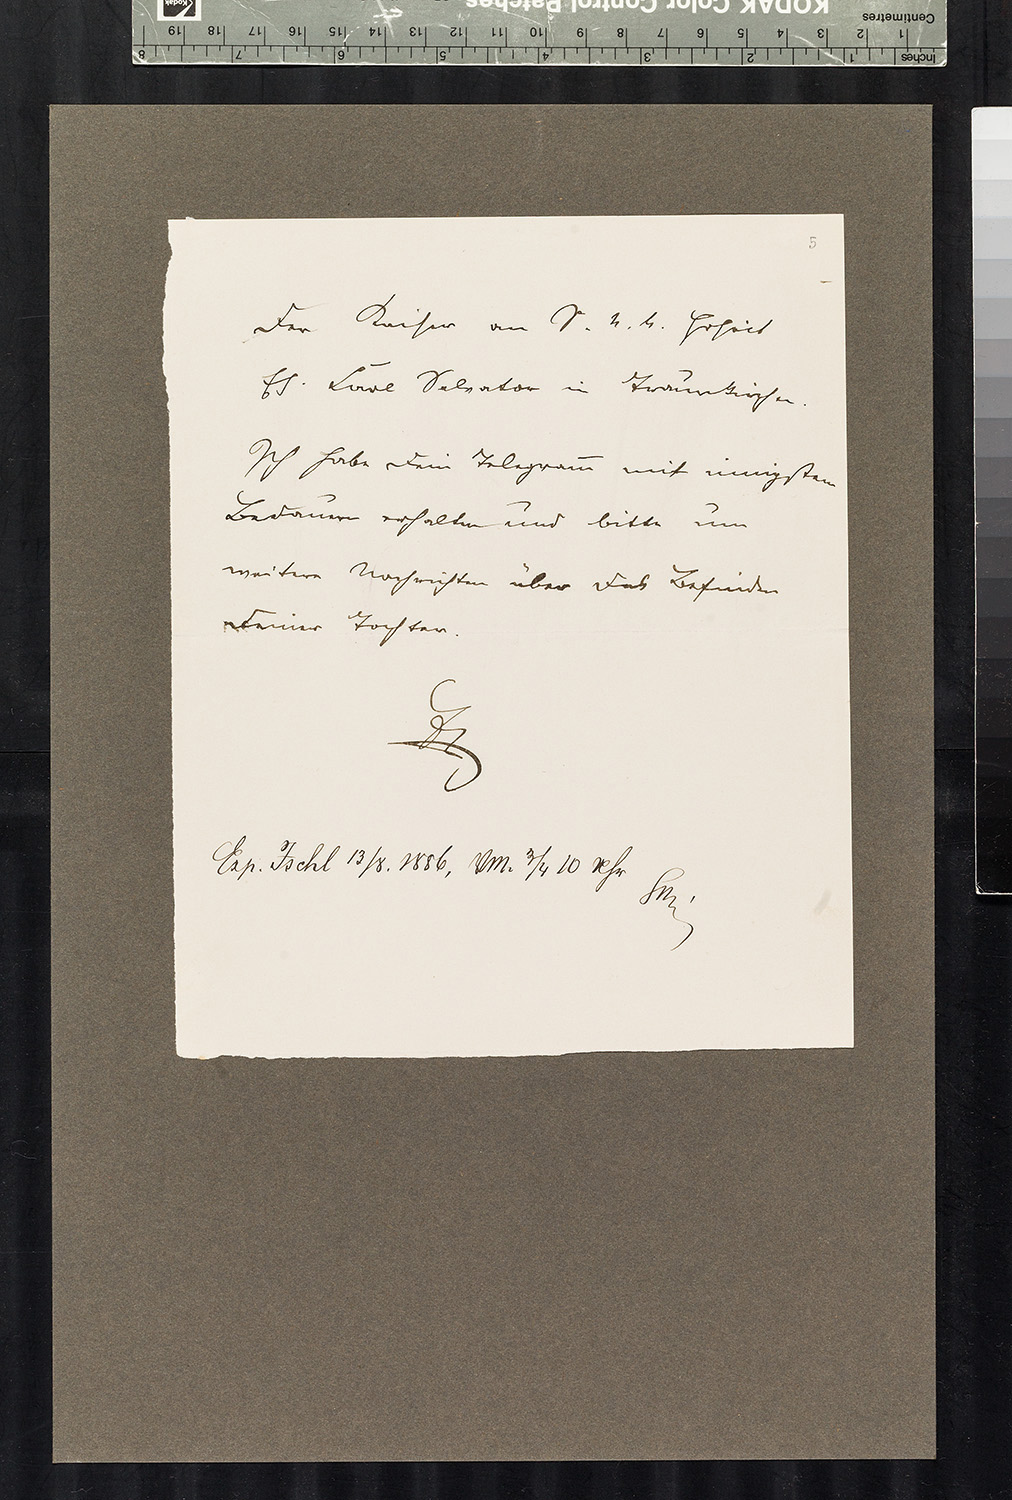 KODAK Color Control Patches
Centimetres
1 2 3 4 5 6 7 8 9 10 11 12 13 14 15 16 17 18 19
Kodak
Inches
1 2 3 4 5 6 7 8
5
Der Kaiser an S. k. k. Hoheit
EH. Carl Salvator in Traunkirchen.
Ich habe Dein Telegram̄ mit innigstem
Bedauern erhalten und bitte um
weitere Nachrichten über das Befinden
Deiner Tochter.
Exp. Ischl 13/8. 1886, VM. 3/4 10 Uhr